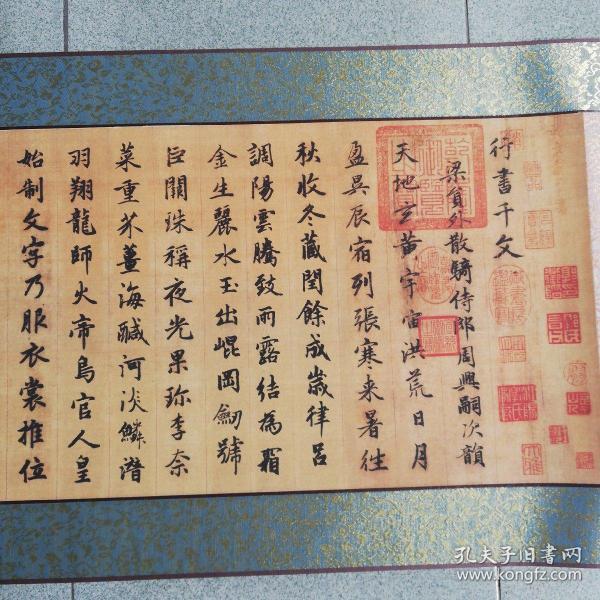 行書千文
梁員外散騎侍郎周興嗣次韻
天地玄黃宇宙洪荒日月
盈昃辰宿列張寒来暑往
秋收冬藏閏餘成歲律呂
調陽雲騰致雨露結為霜
金生麗水玉出崐岡劒號
巨闕珠稱夜光果珎李柰
菜重芥薑海鹹河淡鱗潛
羽翔龍師火帝鳥官人皇
始制文字乃服衣裳推位
孔夫子旧书网
www.kongfz.com